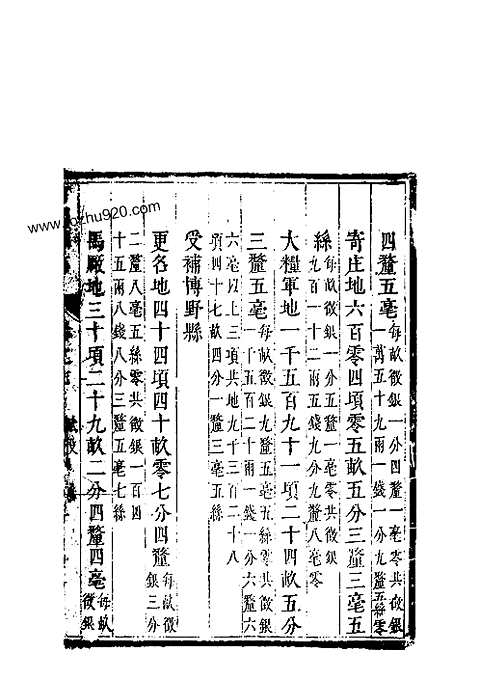 四釐五毫每畝徵銀一分四釐一毫零共徵銀一萬五十九兩一錢一分九釐五絲零
寄庄地六百零四項零五畝五分三釐三毫五
絲每畝徵銀一分五釐一毫零共徵銀九百一十二兩五錢九分九釐八毫零
大糧軍地一千五百九十一項二十四畝五分
三釐五毫每畝徵銀九釐五毫五絲零共徵銀一千五百二十兩一錢一分六釐六
六毫以上三項共地九千三百二十八項四十七畝四分一釐三毫五絲
受補博野縣
更名地四十四項四十畝零七分四釐每畝徵銀三分
二釐八毫五絲零共徵銀一百四十五兩八錢八分三釐五毫七絲
馬廠地三十項二十九畝二分四釐四毫每畝徵銀
www.bzhu920.com